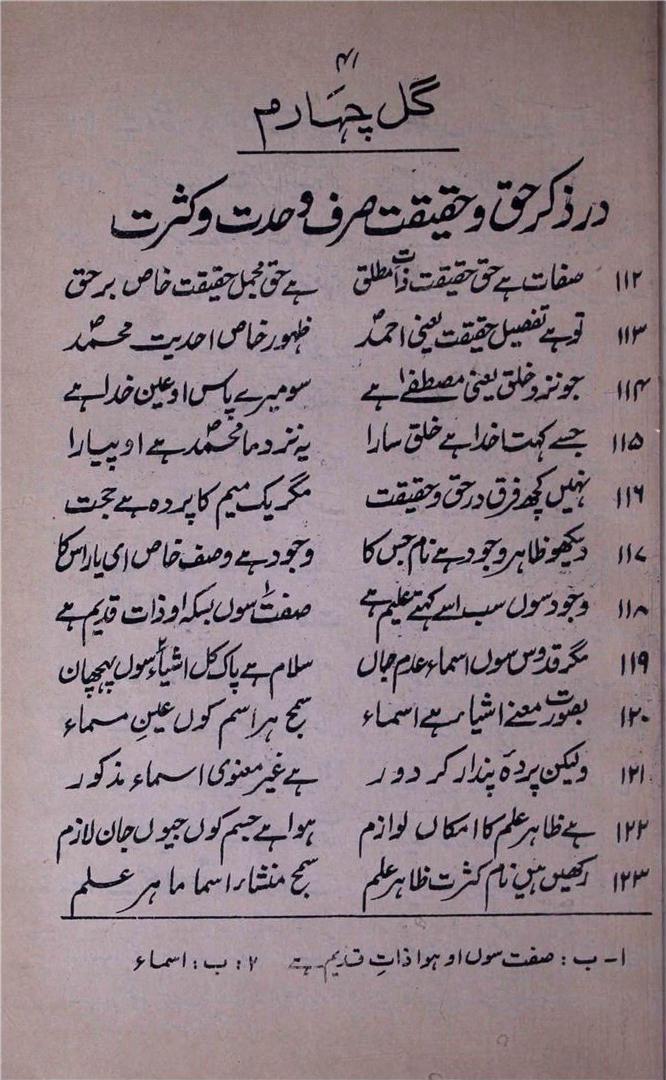 ۴۱
گل چہارم
در ذکر حق و حقیقت صرف وحدت و کثرت
۱۱۲ صفات ہے حق حقیقت ذات مطلق ہے حق مجمل حقیقت خاص بر حق
۱۱۳ تو ہے تفصیل حقیقت یعنی احمدؐ ظہور خاص احدیت محمدؐ
۱۱۴ جو نزد خلق یعنی مصطفےٰ ہے سو میرے پاس او عین خدا ہے
۱۱۵ جسے کہتا خدا ہے خلق سارا یہ نزد ما محمدؐ ہے او پیارا
۱۱۶ نہیں کچھ فرق در حق و حقیقت مگر یک میم کا پردہ ہے حجت
۱۱۷ دیکھو ظاہر وجود ہے نام جس کا وجود ہے وصف خاص ای یار اس کا
۱۱۸ وجود سوں سب اسے کہتے علیم ہے صفت۱ سوں بسکہ او ذات قدیم ہے
۱۱۹ مگر قدوس سوں اسماء عدم جاں سلام ہے پاک کل اشیاء۲ سوں پہچان
۱۲۰ بصورت معنے اشیاء ہے اسماء سمج ہر اسم کوں عینِ مسماء
۱۲۱ ولیکن پردۂ پندار کر دور ہے غیر معنوی اسماء مذکور
۱۲۲ ہے ظاہر علم کا امکاں لوازم ہوا ہے جسم کوں جیوں جان لازم
۱۲۳ رکھیں ہیں نام کثرت ظاہر علم سمج منشاء اسما ماہر علم
۱۔ ب : صفت سوں او ہوا ذاتِ قدیم ہے ۲ : ب : اسماء